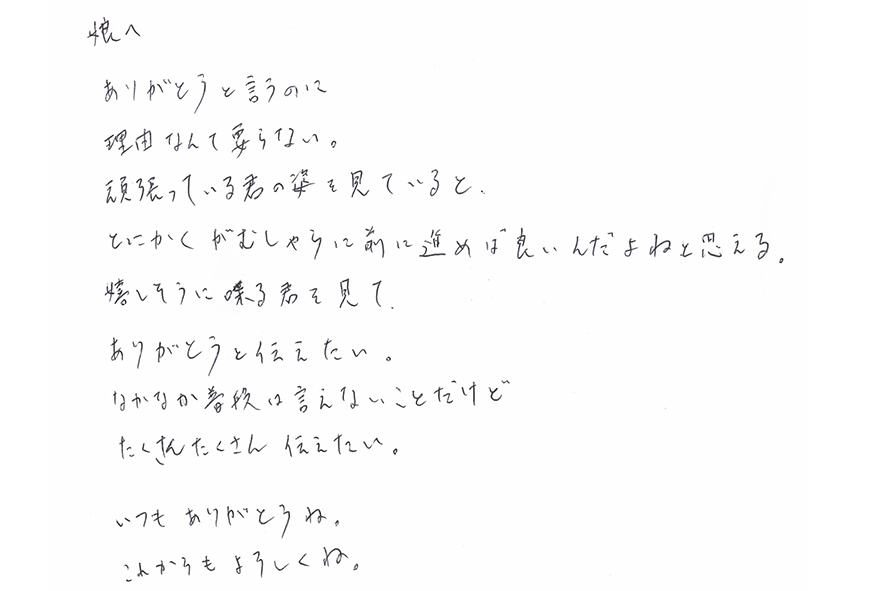 娘へ
ありがとうと言うのに
理由なんて要らない。
頑張っている君の姿を見ていると、
とにかくがむしゃらに前に進めば良いんだよねと思える。
嬉しそうに喋る君を見て、
ありがとうと伝えたい。
なかなか普段は言えないことだけど
たくさんたくさん伝えたい。
いつもありがとうね。
これからもよろしくね。